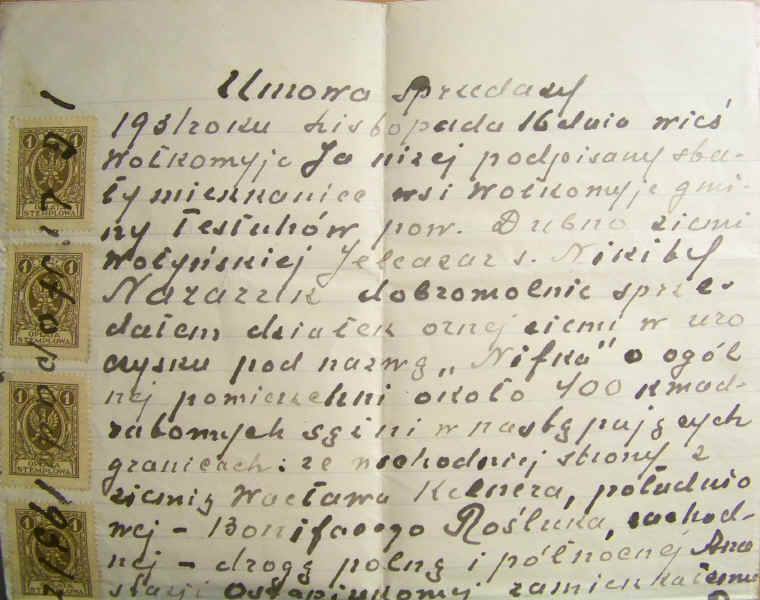 Umowa sprzedaży
1931 roku Listopada 16 dnia wieś
Wołkowyje Ja niżej podpisany sta-
ły mieszkaniec wsi Wołkowyje gmi-
ny Tesłuhów pow. Dubno ziemi
Wołyńskiej Jeleazar s. Nikity
Nazaruk dobrowolnie sprze-
dałem działek ornej ziemi w uro
czysku pod nazwą „Nifka" o ogól
nej powierzchni około 400 kwad-
ratowych sążni w następujących
granicach: ze wschodniej strony z
ziemią Wacława Kelnera, południo
wej - Bonifacego Rośluka, zachod-
nej - drogą polną i północnej Ana
stazji Ostapiukowej zamieszkałemu
1 1
OPŁATA
STEMPLOWA
1 1
OPŁATA
STEMPLOWA
1 1
OPŁATA
STEMPLOWA
1 1